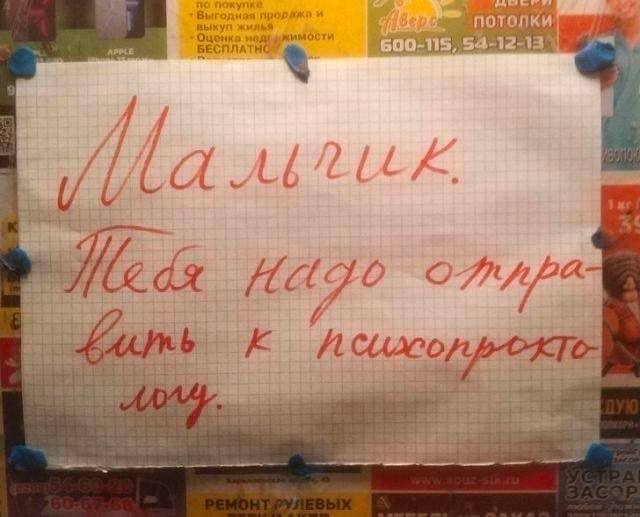 по покупке
Выгодная продажа и
выкуп жилья
Оценка недвижимости
БЕСПЛАТНО
APPLE
Аверс
ДВЕРИ
ПОТОЛКИ
600-115, 54-12-13
Мальчик.
Тебя надо отпра-
вить к психопрокто
логу.
1 кг
РЕМОНТ РУЛЕВЫХ
УСТРА
ЗАСОР